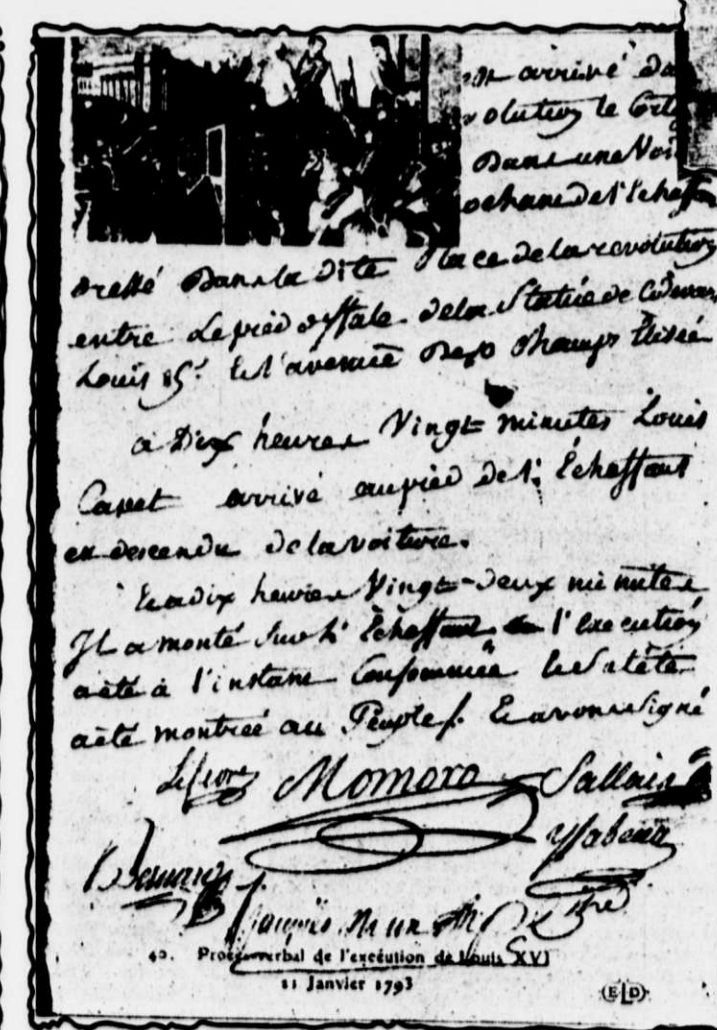 est arrivé da
volution le
Dans une Voi
ochane de l'Echaffau
dressé Dans la dite Place de la revolution
entre Le pied d'Estale de la Statue de Cidevant
Louis 15.e Et l'avenue Des Champs Elisée
a Dix heures Vingt minutes Louis
Capet arrivé au pied de l'Echaffaut
est descendu de la voiture.
Et a dix heures Vingt-deux minutes
Il a monté Sur l'Echaffaut l'execution
a été à l'instant Consommée et Sa tête
a été montreé au Peuple. Et avons signé
Lefevre Momoro Sallais
Isabeau
Jacques
40. Procès-verbal de l'exécution de Louis XVI
21 Janvier 1793
ELD